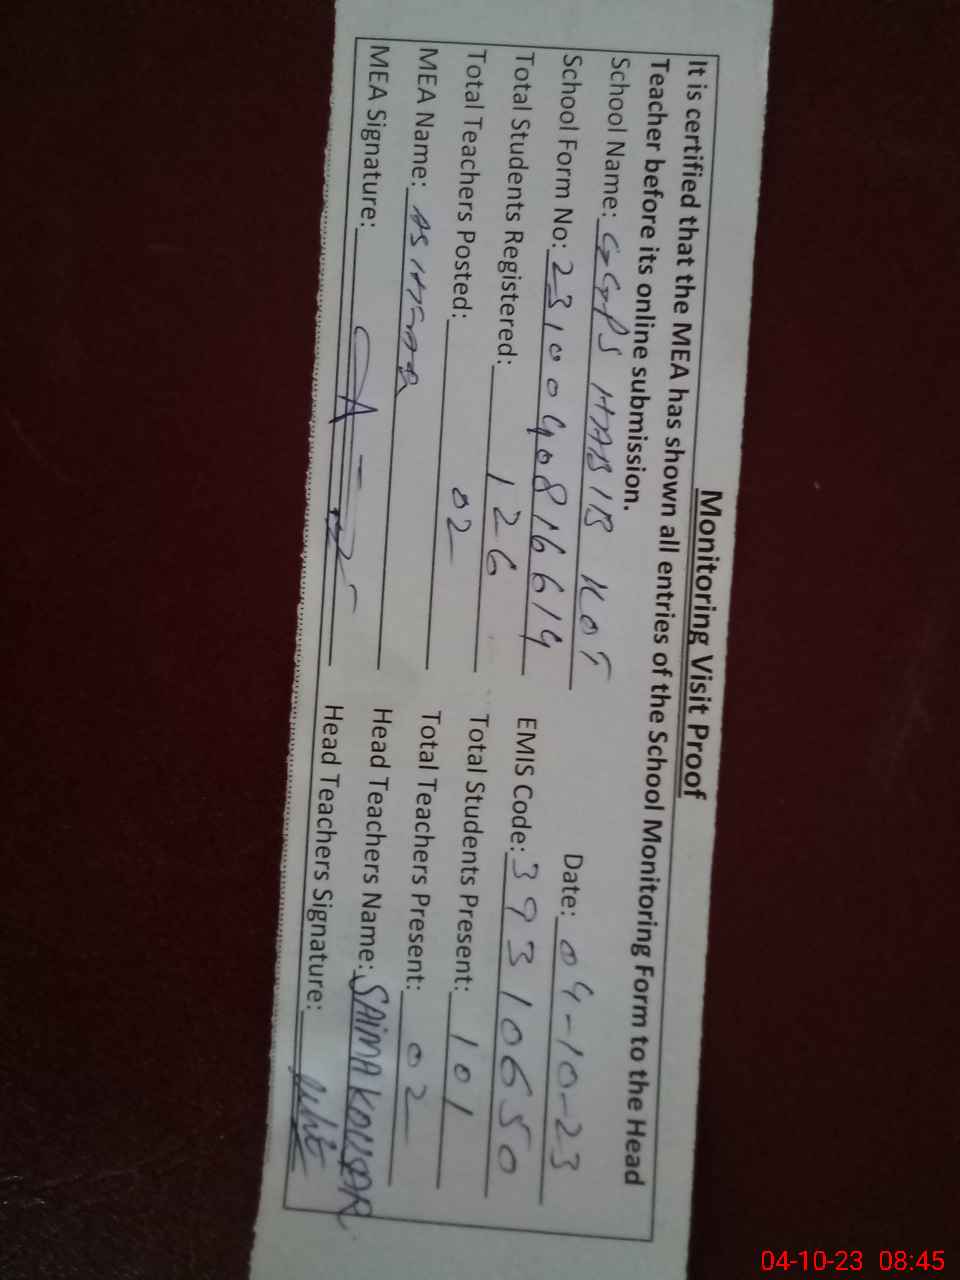 Monitoring Visit Proof
It is certified that the MEA has shown all entries of the School Monitoring Form to the Head
Teacher before its online submission.
School Name: GGPS HABIB KOT Date: 04-10-23
School Form No: 2310040816614 EMIS Code: 39310650
Total Students Registered: 126 Total Students Present: 101
Total Teachers Posted: 02 Total Teachers Present: 02
MEA Name: Head Teachers Name: SAIMA KOUSAR
MEA Signature: Head Teachers Signature:
04-10-23 08:45